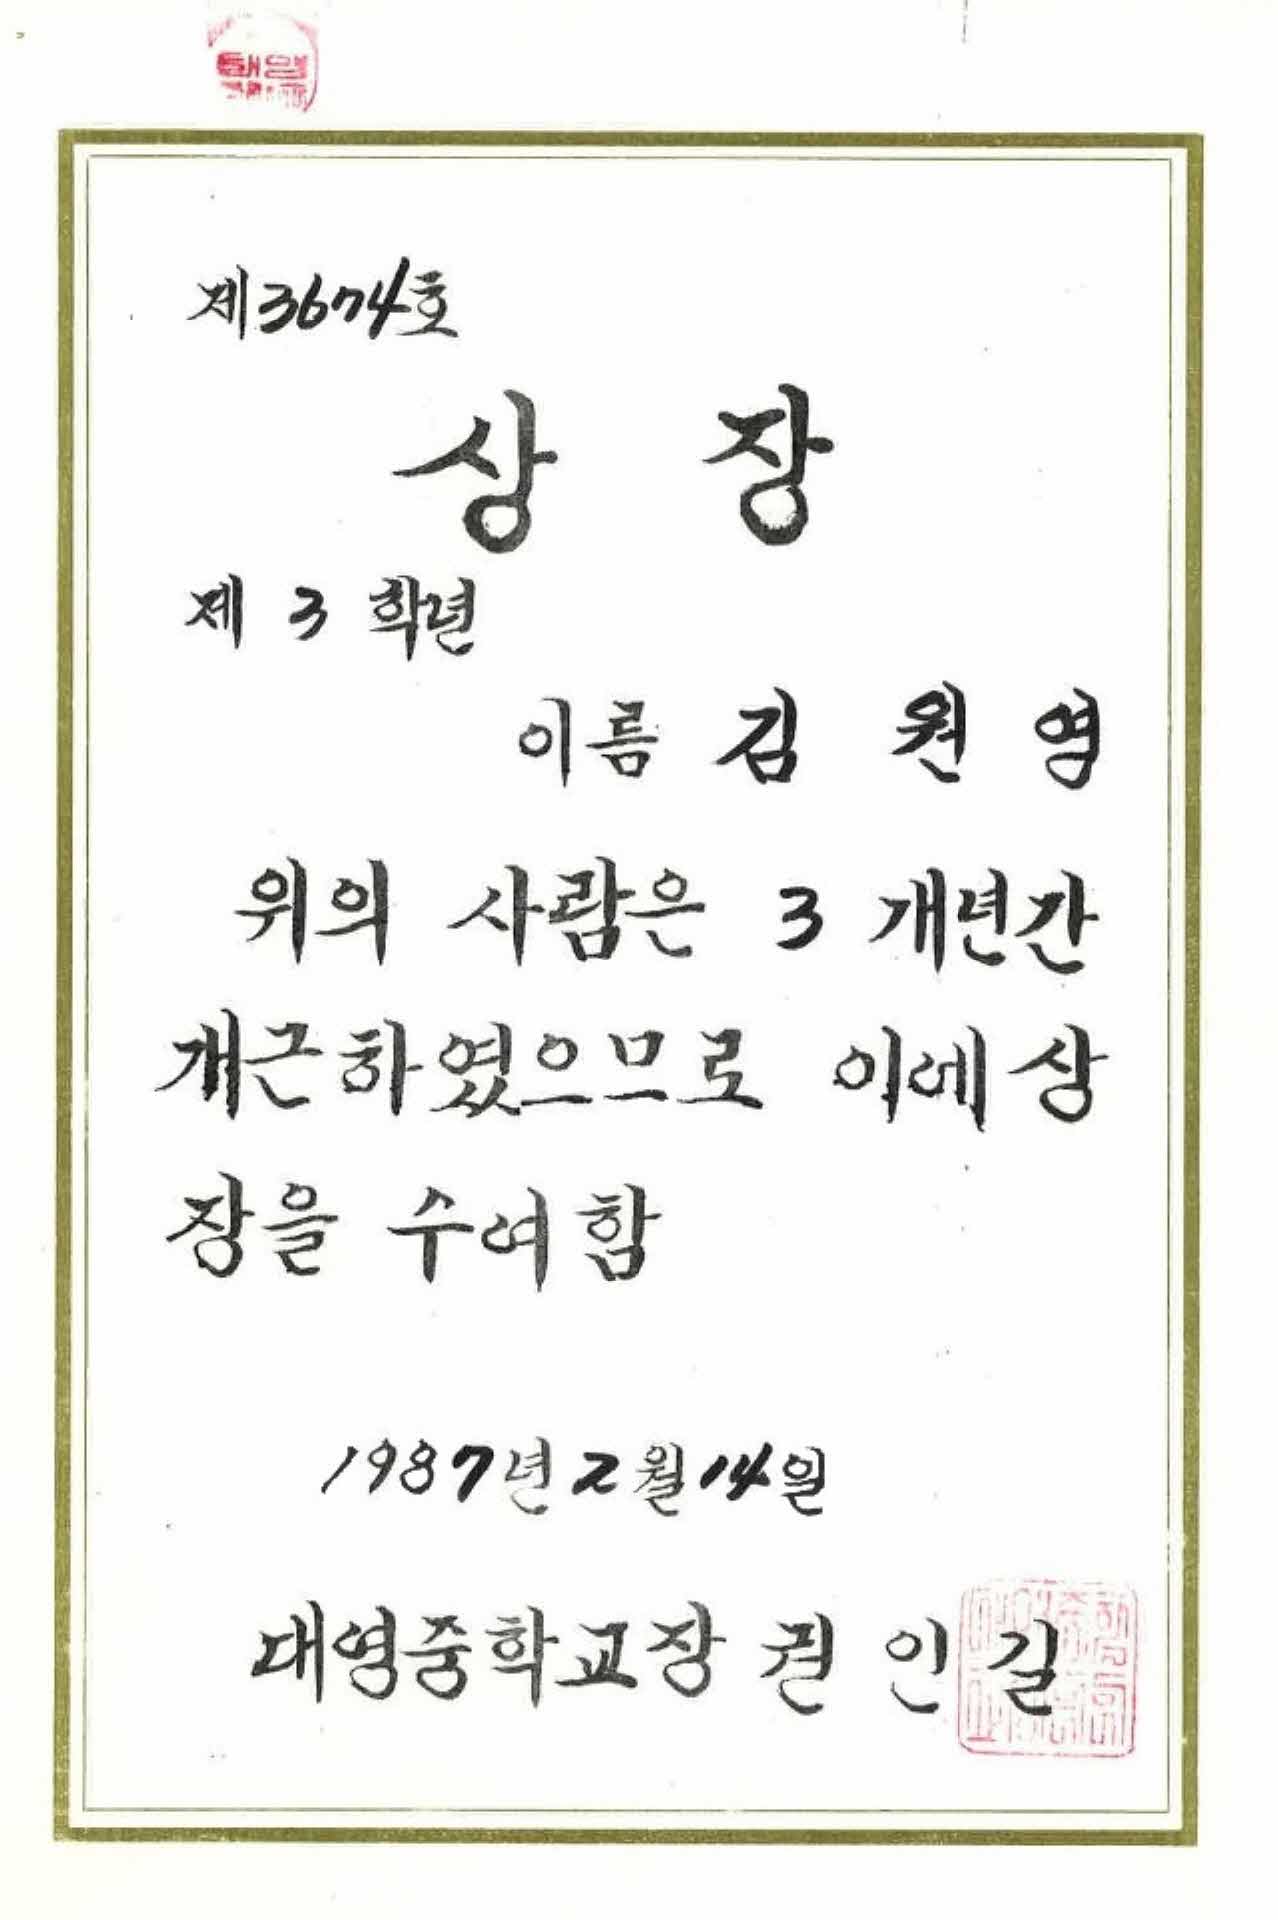 제3674호
상 장
제 3 학년
이름 김 원 영
위의 사람은 3 개년간
개근하였으므로 이에 상
장을 수여함
1987년 2월 14일
대영중학교장 권 인 길